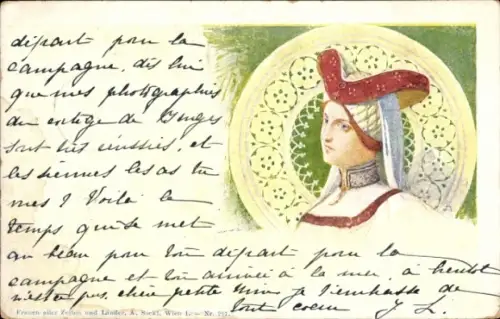 départ pour la
campagne, dis lui
que mes photographies
du cortège de Bruges
sont très réussies, et
les siennes les as tu
vues ? Voilà le
temps qui se met
au beau pour ton départ pour la
campagne et ton arrivée à la mer, à bientôt
n'est ce pas, chère petite Mimi je t'embrasse de
tout coeur J L.
Frauen aller Zeiten und Länder, A. Sockl, Wien I. — Nr.